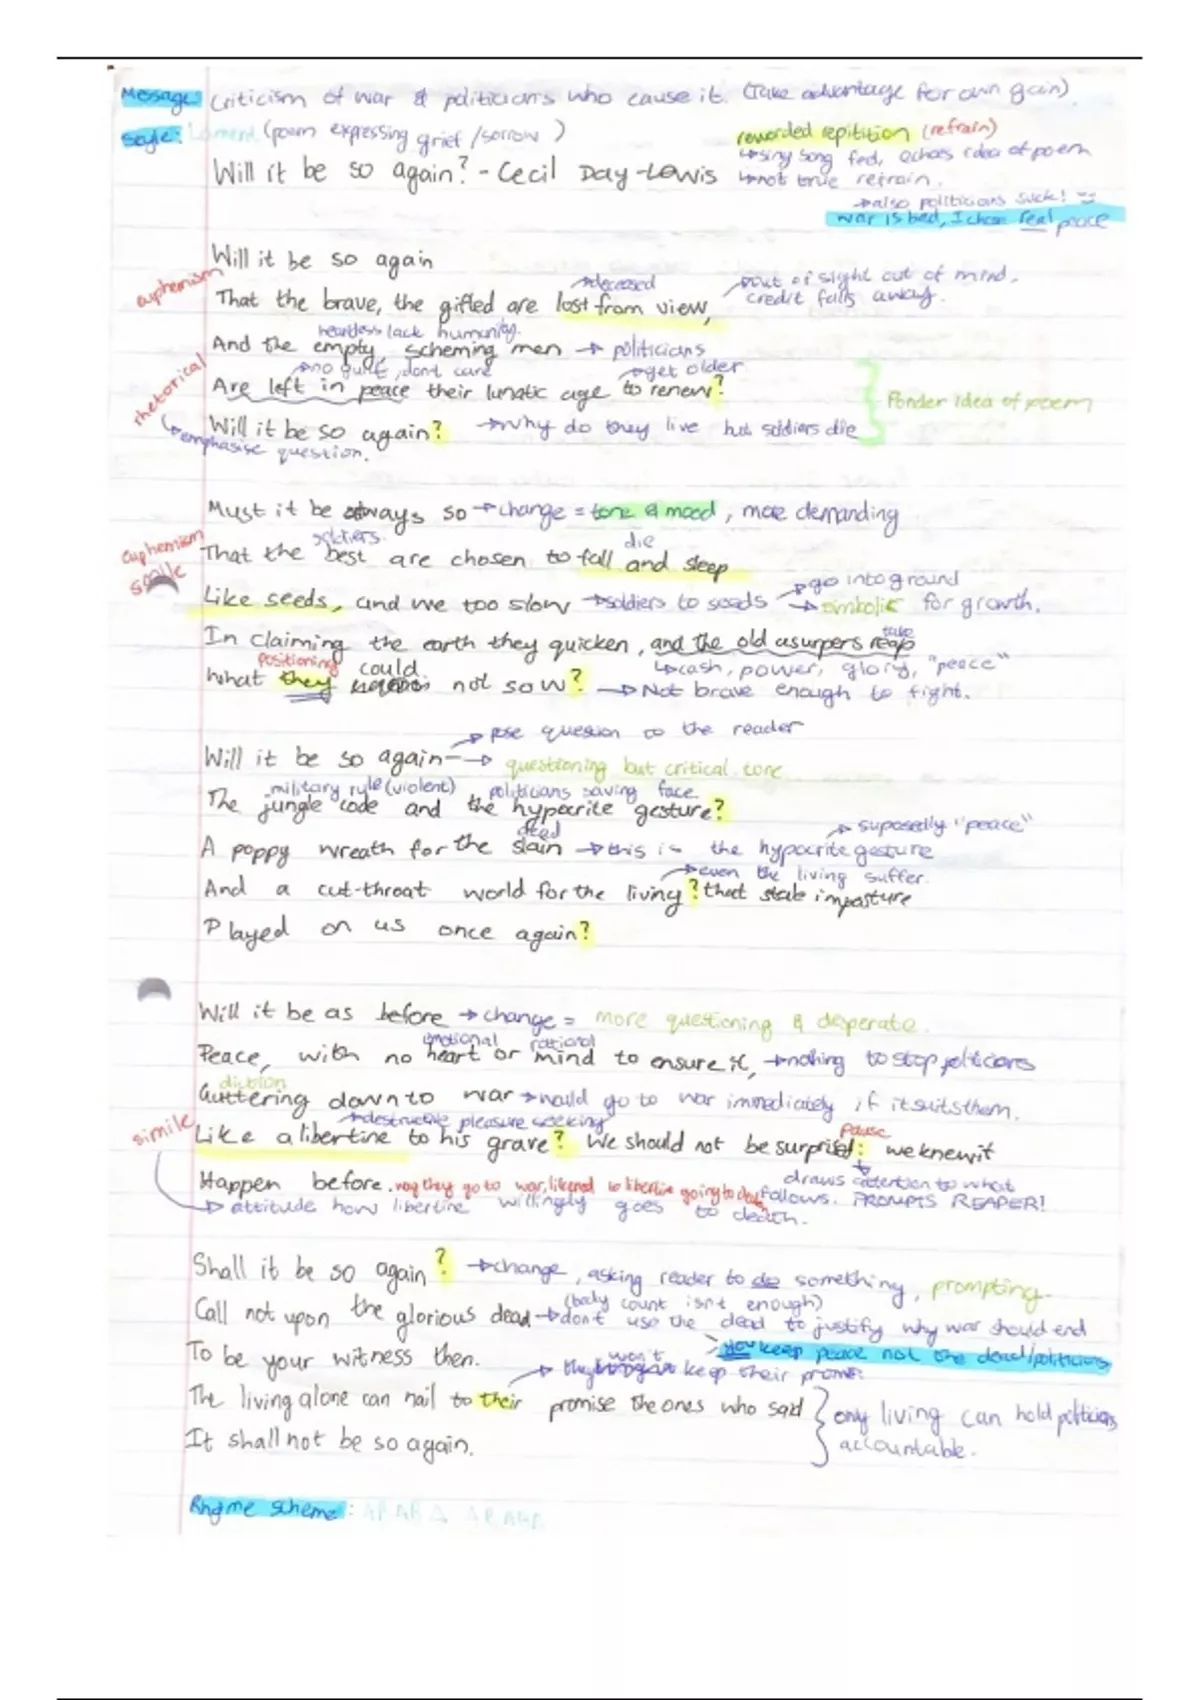 Message: Criticism of war & politicians who cause it. (Take advantage for own gain)
Style: Lament (poem expressing grief/sorrow)
reworded repitition (refrain)
↳siny song fed, echoes idea of poem
Will it be so again? - Cecil Day-Lewis
↳not true refrain.
→also politicians suck!
War is bad, I chose real peace
Will it be so again
euphemism
→deceased
→out of sight out of mind.
That the brave, the gifted are lost from view,
credit falls away.
heartless lack humanity.
And the empty, scheming men → politicians
→no guilt, dont care
→get older
rhetorical
Are left in peace their lunatic age to renew?
Ponder idea of poem
Will it be so again? → why do they live but soldiers die
↳emphasise question.
Must it be always so → change = tone & mood, more demanding
euphemism
soldiers
die
That the best are chosen to fall and sleep
simile
→go into ground
Like seeds, and we too slow → soldiers to seeds → simbolic for growth.
take
In claiming the earth they quicken, and the old usurpers reap
positioning
↳cash, power, glory, "peace"
What they could not sow? → Not brave enough to fight.
→ pose question to the reader
Will it be so again - → questioning but critical tone
military rule (violent)
politicians saving face
The jungle code and the hypocrite gesture?
dead
→ suposedly "peace"
A poppy wreath for the slain → this is the hypocrite gesture
→even the living suffer.
And a cut-throat world for the living? that stale imposture
Played on us once again?
Will it be as before → change = more questioning & desperate.
emotional
rational
Peace, with no heart or mind to ensure it, → nothing to stop politicians
diction
Guttering down to war → would go to war immediately if it suits them.
→destructive pleasure seeking
simile
pause
Like a libertine to his grave? We should not be surprised: we knew it
draws attention to what
Happen before. way they go to war, likened to libertine going to follows. PROMPTS REAPER!
→ attitude how libertine willingly goes to death.
Shall it be so again? → change, asking reader to do something, prompting.
(body count isnt enough)
Call not upon the glorious dead → dont use the dead to justify why war should end
you keep peace not the dead/politicians
To be your witness then.
→ they won't keep their promise
The living alone can nail to their promise the ones who said
only living can hold politicians
It shall not be so again.
accountable.
Rhyme scheme: